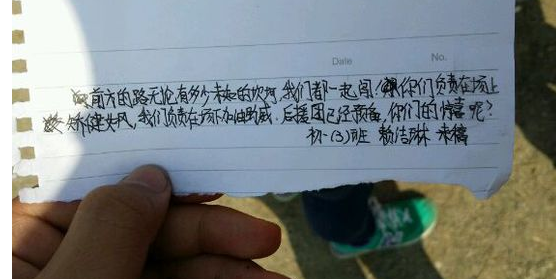 Date No.
前方的路无论有多少未知的坎坷,我们都一起闯!你们负责在场上
矫健生风,我们负责在场下加油助威,后援团已经预备,你们的惊喜呢?
初一(3)班 赖洁琳 来稿